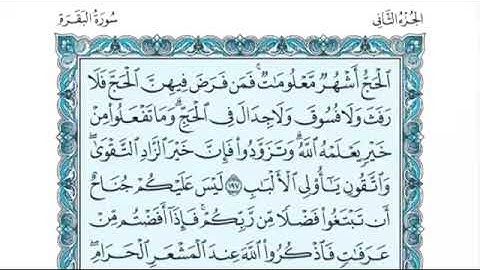 الجزء الثاني
سورة البقرة
ٱلْحَجُّ أَشْهُرٌ مَّعْلُومَٰتٌ ۚ فَمَن فَرَضَ فِيهِنَّ ٱلْحَجَّ فَلَا
رَفَثَ وَلَا فُسُوقَ وَلَا جِدَالَ فِى ٱلْحَجِّ ۗ وَمَا تَفْعَلُوا۟ مِنْ
خَيْرٍ يَعْلَمْهُ ٱللَّهُ ۗ وَتَزَوَّدُوا۟ فَإِنَّ خَيْرَ ٱلزَّادِ ٱلتَّقْوَىٰ ۚ
وَٱتَّقُونِ يَٰٓأُو۟لِى ٱلْأَلْبَٰبِ ١٩٧ لَيْسَ عَلَيْكُمْ جُنَاحٌ
أَن تَبْتَغُوا۟ فَضْلًا مِّن رَّبِّكُمْ ۚ فَإِذَآ أَفَضْتُم مِّنْ
عَرَفَٰتٍ فَٱذْكُرُوا۟ ٱللَّهَ عِندَ ٱلْمَشْعَرِ ٱلْحَرَامِ ۖ